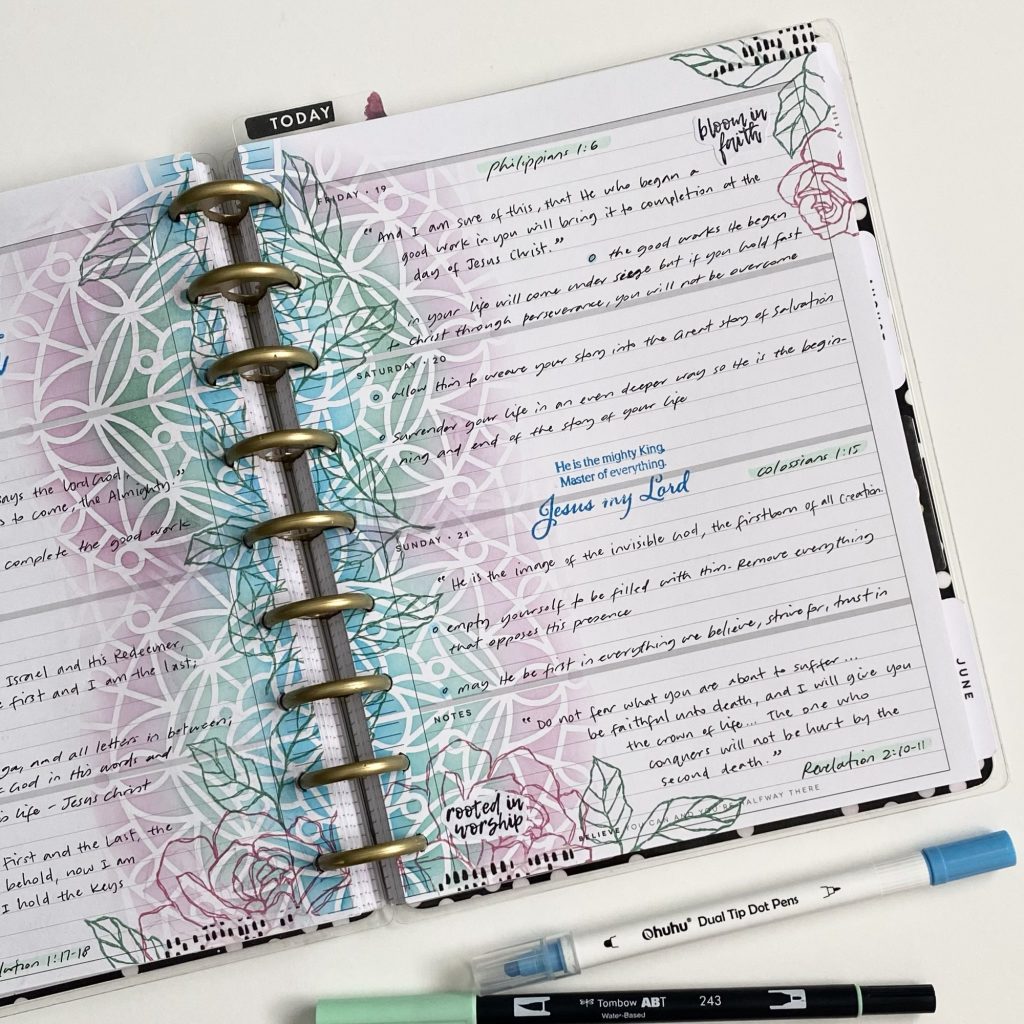 TODAY
says the Lord God,
to come, the Almighty."
complete the good work
Israel and His Redeemer,
first and I am the last;
and all letters in between,
God in His words and
life - Jesus Christ
First and the Last, the
behold, now I am
I hold the keys
1:17-18
bloom in
faith
Philippians 1:6
FRIDAY • 19
"And I am sure of this, that He who began a
good work in you will bring it to completion at the
day of Jesus Christ."
the good works He began
in your life will come under siege but if you hold fast
Christ through perseverance, you will not be overcome
SATURDAY • 20
allow Him to weave your story into the Great story of Salvation
Surrender your life in an even deeper way so He is the begin-
ning and end of the story of your life
He is the mighty King,
Master of everything.
Jesus my Lord
Colossians 1:15
SUNDAY • 21
"He is the image of the invisible God, the firstborn of all creation
empty yourself to be filled with Him. Remove everything
that opposes His presence
may He be first in everything we believe, strive for, trust in
NOTES
"Do not fear what you are about to suffer...
be faithful unto death, and I will give you
the crown of life... The one who
conquers will not be hurt by the
second death."
Revelation 2:10-11
rooted in
worship
BELIEVE YOU CAN AND YOU'RE HALFWAY THERE
JUNE
Ohuhu® Dual Tip Dot Pens
Tombow ABT 243
Water-Based